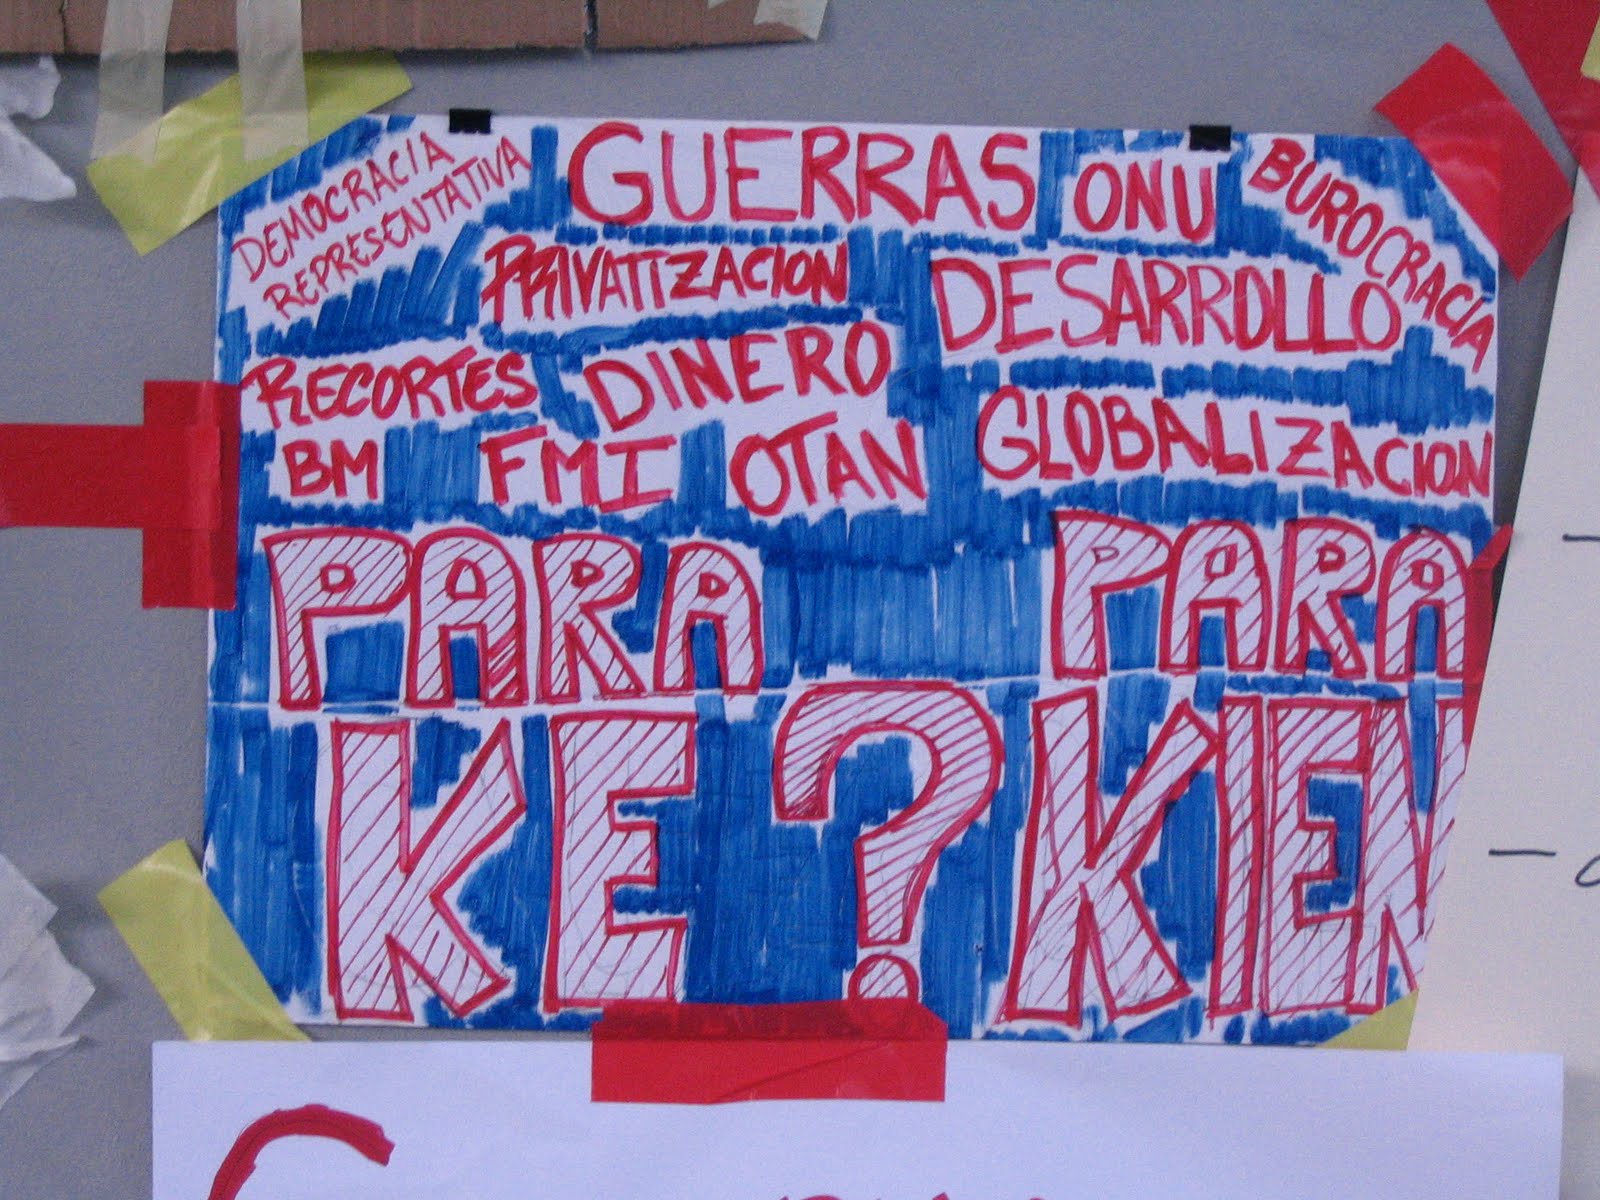 DEMOCRACIA
REPRESENTATIVA
GUERRAS
ONU
BUROCRACÍA
PRIVATIZACION
DESARROLLO
RECORTES
DINERO
GLOBALIZACION
BM FMI OTAN
PARA KE? PARA KIEN